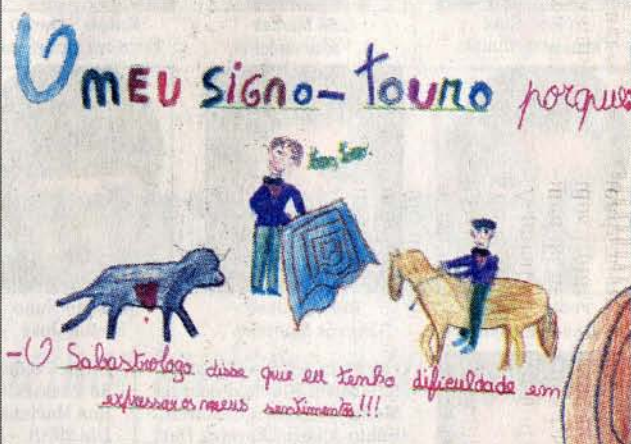 O MEU SIGNO - touro porque
- O Sabastrologo disse que eu tenho dificuldade em
expressar os meus sentimentos!!!